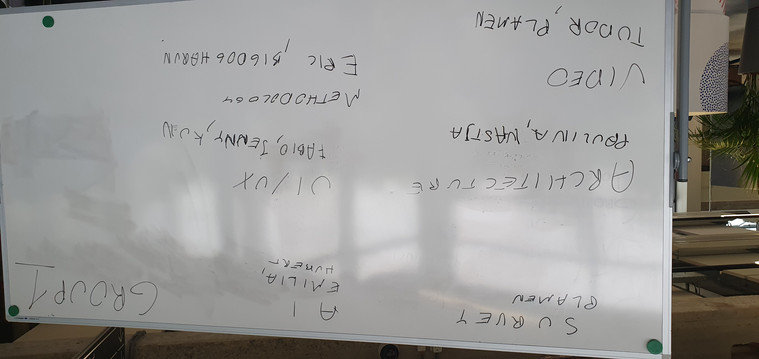 SURVEY
PLAMEN
AI
EMILIA,
HUBERT
GROUP 1
ARCHITECTURE
PAULINA, NASTJA
UI/UX
FABIO, JENNY,
VIDEO
TUDOR, PLAMEN
METHODOLOGY
ERIC, BIGDOG HARUN